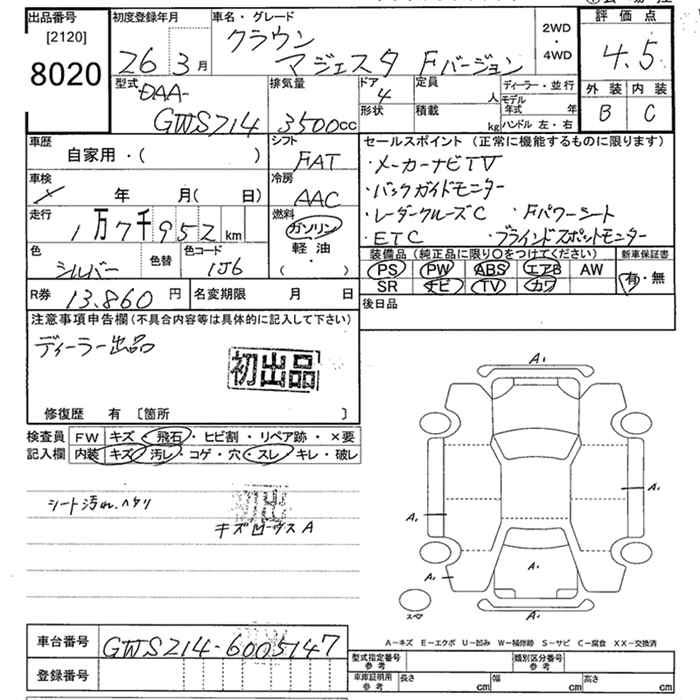 出品番号 初度登録年月 車名・グレード 評価点
[2120]
8020
26 3月 クラウン マジェスタ Fバージョン 2WD
4WD
4.5
型式 排気量 ドア 定員 ディーラー・並行 外装 内装
DAA- 4 人 モデル年式 年
形状 積載 B C
GWS214 3500cc kg ハンドル 左・右
車歴 シフト セールスポイント (正常に機能するものに限ります)
自家用・( ) FAT ・メーカーナビTV
車検 冷房 ・バックガイドモニター
年 月(日) AAC ・レーダークルーズC ・Fパワーシート
走行 燃料 ・ETC ・ブラインドスポットモニター
1万7千952km ガソリン
軽油
・( )
色 色替 色コード 装備品 (純正品に限り○をつけてください) 新車保証書
シルバー 1J6 PS PW ABS エアB AW 有・無
SR ナビ TV カワ
R券 13.860円 名変期限 月 日 後日品
注意事項申告欄(不具合内容等は具体的に記入して下さい)
ディーラー出品
初出品
修復歴 有 [箇所 ]
検査員 FW キズ・飛石・ヒビ割・リペア跡・×要
記入欄 内装 キズ・汚レ・コゲ・穴・スレ・キレ・破レ
シート汚れ、ヘタリ
A1
A1
A1
A1
A1
スペア
A-キズ E-エクボ U-凹み W-補修跡 S-サビ C-腐食 XX-交換済
車台番号 GWS214-6005147
登録番号
型式指定番号 参考 類別区分番号 参考
車庫証明用 参考 長さ cm 幅 cm 高さ cm